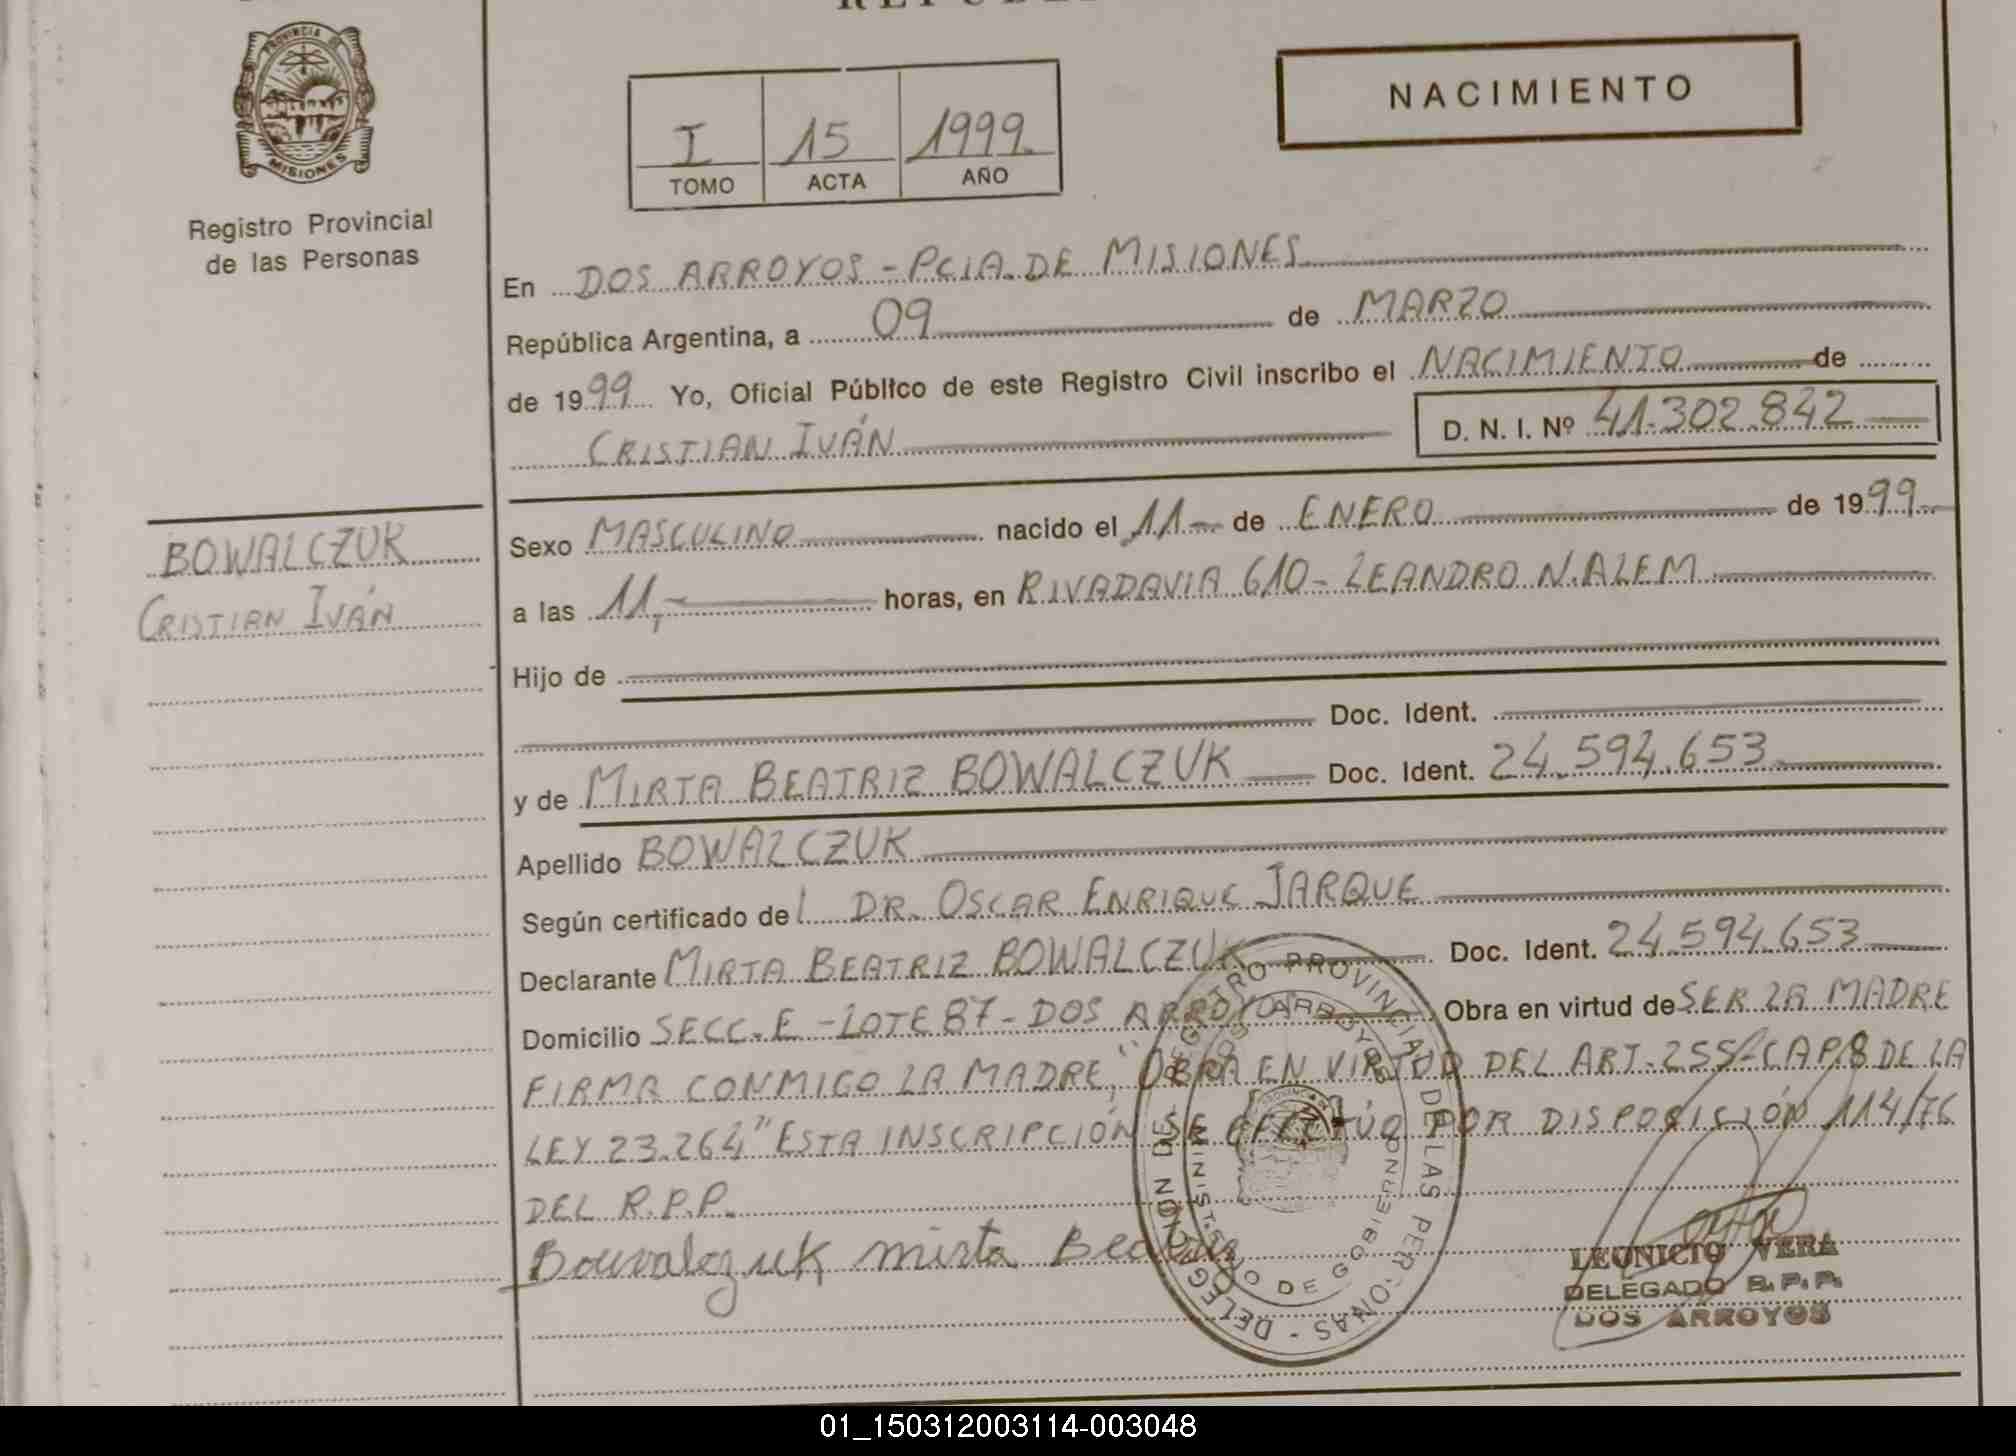 REPÚBL
PROVINCIA DE
MISIONES
Registro Provincial
de las Personas
I 15 1999
TOMO ACTA AÑO
NACIMIENTO
En DOS ARROYOS - PCIA. DE MISIONES
República Argentina, a 09 de MARZO
de 1999 Yo, Oficial Público de este Registro Civil inscribo el NACIMIENTO de
CRISTIAN IVÁN D. N. I. Nº 41.302.842
BOWALCZUK
CRISTIAN IVÁN
Sexo MASCULINO nacido el 11 de ENERO de 1999
a las 11,- horas, en RIVADAVIA 610 - LEANDRO N. ALEM
Hijo de
Doc. Ident.
y de MIRTA BEATRIZ BOWALCZUK Doc. Ident. 24.594.653
Apellido BOWALCZUK
Según certificado del DR. OSCAR ENRIQUE JARQUE
Declarante MIRTA BEATRIZ BOWALCZUK Doc. Ident. 24.594.653
Domicilio SECC. E - LOTE 87 - DOS ARROYOS Obra en virtud de SER LA MADRE
FIRMA CONMIGO LA MADRE, "OBRA EN VIRTUD DEL ART. 255 - CAP. 8 DE LA
LEY 23.264" ESTA INSCRIPCIÓN SE EFECTÚO POR DISPOSICIÓN 114/76
DEL R.P.P.
Bowalczuk Mirta Beatriz
REGISTRO PROVINCIAL DE LAS PERSONAS - DELEGACION DE
DOS ARROYOS
MINIST. DE GOBIERNO
LEONICIO VERA
DELEGADO R. P. P.
DOS ARROYOS
01_150312003114-003048